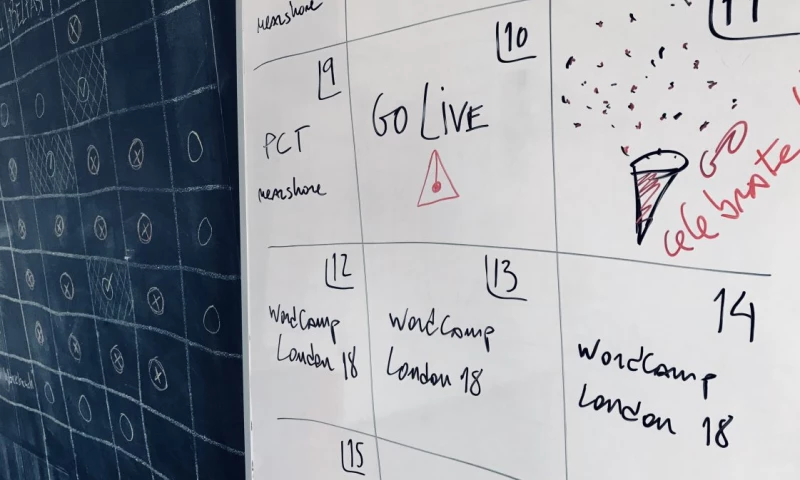 10
11
9
GO LIVE
PCT
GO
celebrate
12
13
14
WordCamp
London 18
WordCamp
London 18
WordCamp
London 18
15